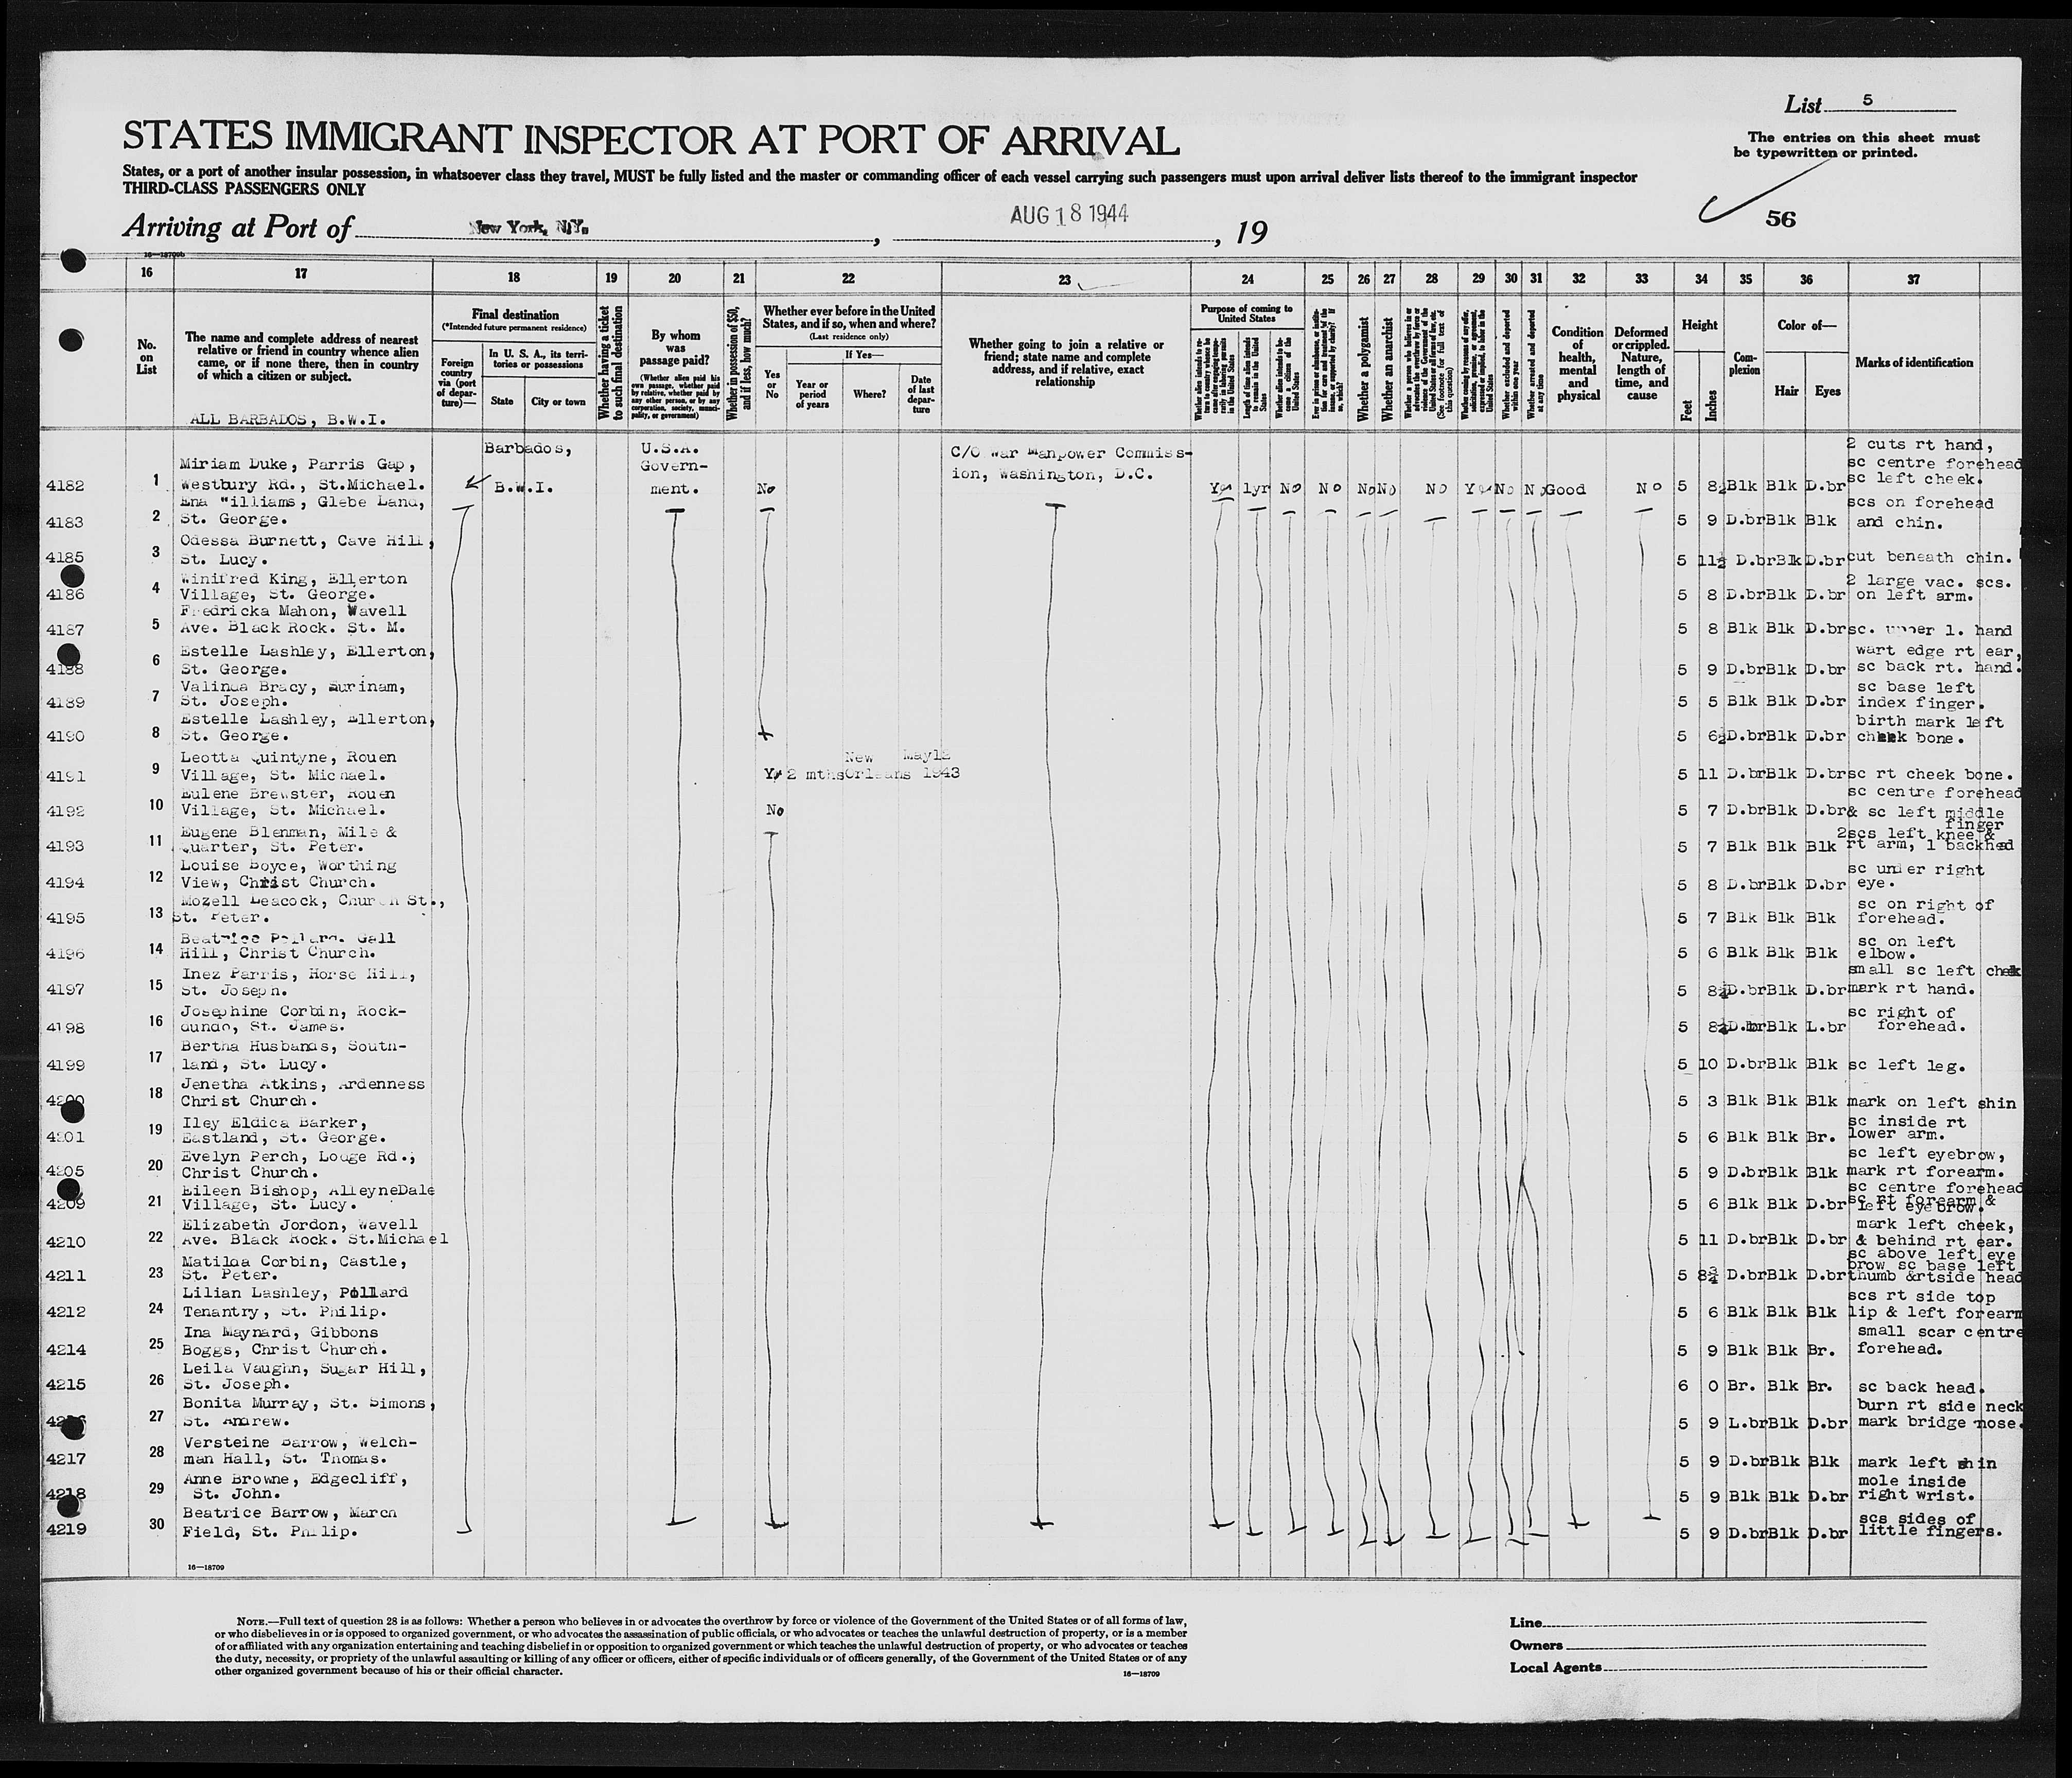 List 5
The entries on this sheet must
be typewritten or printed.
STATES IMMIGRANT INSPECTOR AT PORT OF ARRIVAL
States, or a port of another insular possession, in whatsoever class they travel, MUST be fully listed and the master or commanding officer of each vessel carrying such passengers must upon arrival deliver lists thereof to the immigrant inspector
THIRD-CLASS PASSENGERS ONLY
56
Arriving at Port of New York, N.Y. , AUG 18 1944 , 19
16—18709b
16 17 18 19 20 21 22 23 24 25 26 27 28 29 30 31 32 33 34 35 36 37
No.
on
List
The name and complete address of nearest
relative or friend in country whence alien
came, or if none there, then in country
of which a citizen or subject.
ALL BARBADOS, B.W.I.
Final destination
(*Intended future permanent residence)
Foreign
country
via (port
of depar-
ture)—
In U. S. A., its terri-
tories or possessions
State
City or town
Whether having a ticket
to such final destination
By whom
was
passage paid?
(Whether alien paid his
own passage, whether paid
by relative, whether paid by
any other person, or by any
corporation, society, munici-
pality, or government)
Whether in possession of $50,
and if less, how much?
Whether ever before in the United
States, and if so, when and where?
(Last residence only)
Yes
or
No
If Yes—
Year or
period
of years
Where?
Date
of last
depar-
ture
Whether going to join a relative or
friend; state name and complete
address, and if relative, exact
relationship
Purpose of coming to
United States
Length of time alien intends
to remain in the United
States
Whether alien intends to be-
come a citizen of the
United States
Whether a polygamist
Whether an anarchist
Whether excluded and deported
within one year
Whether arrested and deported
at any time
Condition
of
health,
mental
and
physical
Deformed
or crippled.
Nature,
length of
time, and
cause
Height
Feet
Inches
Com-
plexion
Color of—
Hair
Eyes
Marks of identification
Barbados,
B.W.I.
U.S.A.
Govern-
ment.
No
C/O War Manpower Commiss-
ion, Washington, D.C.
Yes 1yr No No No No No Yes No No Good No
4182 1 Miriam Duke, Parris Gap,
Westbury Rd., St.Michael.
5 8½ Blk Blk D.br
2 cuts rt hand,
sc centre forehead
sc left cheek.
4183 2 Ena Williams, Glebe Land,
St. George.
5 9 D.br Blk Blk
scs on forehead
and chin.
4185 3 Odessa Burnett, Cave Hill,
St. Lucy.
5 11½ D.br Blk D.br cut beneath chin.
4186 4 Winifred King, Ellerton
Village, St. George.
5 8 D.br Blk D.br
2 large vac. scs.
on left arm.
4187 5 Fredricka Mahon, Wavell
Ave. Black Rock. St. M.
5 8 Blk Blk D.br sc. upper l. hand
4188 6 Estelle Lashley, Ellerton,
St. George.
5 9 D.br Blk D.br
wart edge rt ear,
sc back rt. hand.
4189 7 Valinda Bracy, Surinam,
St. Joseph.
5 5 Blk Blk D.br
sc base left
index finger.
4190 8 Estelle Lashley, Ellerton,
St. George.
5 6½ D.br Blk D.br
birth mark left
cheek bone.
4191 9 Leotta Quintyne, Rouen
Village, St. Michael.
Yes 2 mths New
Orleans May12
1943
5 11 D.br Blk D.br sc rt cheek bone.
4192 10 Eulene Brewster, Rouen
Village, St. Michael.
No
5 7 D.br Blk D.br
sc centre forehead
& sc left middle
finger
4193 11 Eugene Blenman, Mile &
Quarter, St. Peter.
5 7 Blk Blk Blk
2scs left knee &
rt arm, 1 backhed
4194 12 Louise Boyce, Worthing
View, Christ Church.
5 8 D.br Blk D.br
sc under right
eye.
4195 13 Mozell Leacock, Church St.,
St. Peter.
5 7 Blk Blk Blk
sc on right of
forehead.
4196 14 Beatrice Pollard. Gall
Hill, Christ Church.
5 6 Blk Blk Blk
sc on left
elbow.
4197 15 Inez Parris, Horse Hill,
St. Joseph.
5 8½ D.br Blk D.br
small sc left cheek
mark rt hand.
4198 16 Josephine Corbin, Rock-
dundo, St. James.
5 8½ D.br Blk L.br
sc right of
forehead.
4199 17 Bertha Husbands, South-
land, St. Lucy.
5 10 D.br Blk Blk sc left leg.
4200 18 Jenetha Atkins, Ardenness
Christ Church.
5 3 Blk Blk Blk mark on left shin
4201 19 Iley Eldica Barker,
Eastland, St. George.
5 6 Blk Blk Br.
sc inside rt
lower arm.
4205 20 Evelyn Perch, Lodge Rd.,
Christ Church.
5 9 D.br Blk Blk
sc left eyebrow,
mark rt forearm.
4209 21 Eileen Bishop, AlleyneDale
Village, St. Lucy.
5 6 Blk Blk D.br
sc centre forehead
sc rt forearm &
left eyebrow.
4210 22 Elizabeth Jordon, Wavell
Ave. Black Rock. St.Michael
5 11 D.br Blk D.br
mark left cheek,
& behind rt ear.
4211 23 Matilda Corbin, Castle,
St. Peter.
5 8¾ D.br Blk D.br
sc above left eye
brow sc base left
thumb &rtside head
4212 24 Lilian Lashley, Pollard
Tenantry, St. Philip.
5 6 Blk Blk Blk
scs rt side top
lip & left forearm
4214 25 Ina Maynard, Gibbons
Boggs, Christ Church.
5 9 Blk Blk Br.
small scar centre
forehead.
4215 26 Leila Vaughn, Sugar Hill,
St. Joseph.
6 0 Br. Blk Br. sc back head.
27 Bonita Murray, St. Simons,
St. Andrew.
5 9 L.br Blk D.br
burn rt side neck
mark bridge nose.
4217 28 Versteine Barrow, Welch-
man Hall, St. Thomas.
5 9 D.br Blk Blk mark left shin
4218 29 Anne Browne, Edgecliff,
St. John.
5 9 Blk Blk D.br
mole inside
right wrist.
4219 30 Beatrice Barrow, March
Field, St. Philip.
5 9 D.br Blk D.br
scs sides of
little fingers.
16—18709
NOTE.—Full text of question 28 is as follows: Whether a person who believes in or advocates the overthrow by force or violence of the Government of the United States or of all forms of law,
or who disbelieves in or is opposed to organized government, or who advocates the assassination of public officials, or who advocates or teaches the unlawful destruction of property, or is a member
of or affiliated with any organization entertaining and teaching disbelief in or opposition to organized government or which teaches the unlawful destruction of property, or who advocates or teaches
the duty, necessity, or propriety of the unlawful assaulting or killing of any officer or officers, either of specific individuals or of officers generally, of the Government of the United States or of any
other organized government because of his or their official character.
16—18709
Line
Owners
Local Agents